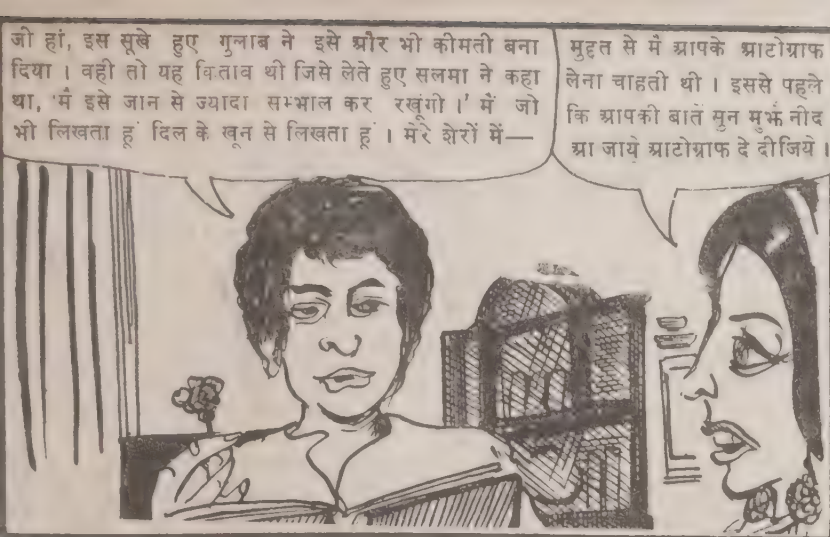 जी हां, इस सूखे हुए गुलाब ने इसे और भी कीमती बना
दिया । वही तो यह किताब थी जिसे लेते हुए सलमा ने कहा
था, 'मैं इसे जान से ज्यादा सम्भाल कर रखूंगी ।' मैं जो
भी लिखता हूं दिल के खून से लिखता हूं । मेरे शेरों में—
मुद्दत से मैं आपके आटोग्राफ
लेना चाहती थी । इससे पहले
कि आपकी बातें सुन मुझे नींद
आ जाये आटोग्राफ दे दीजिये ।